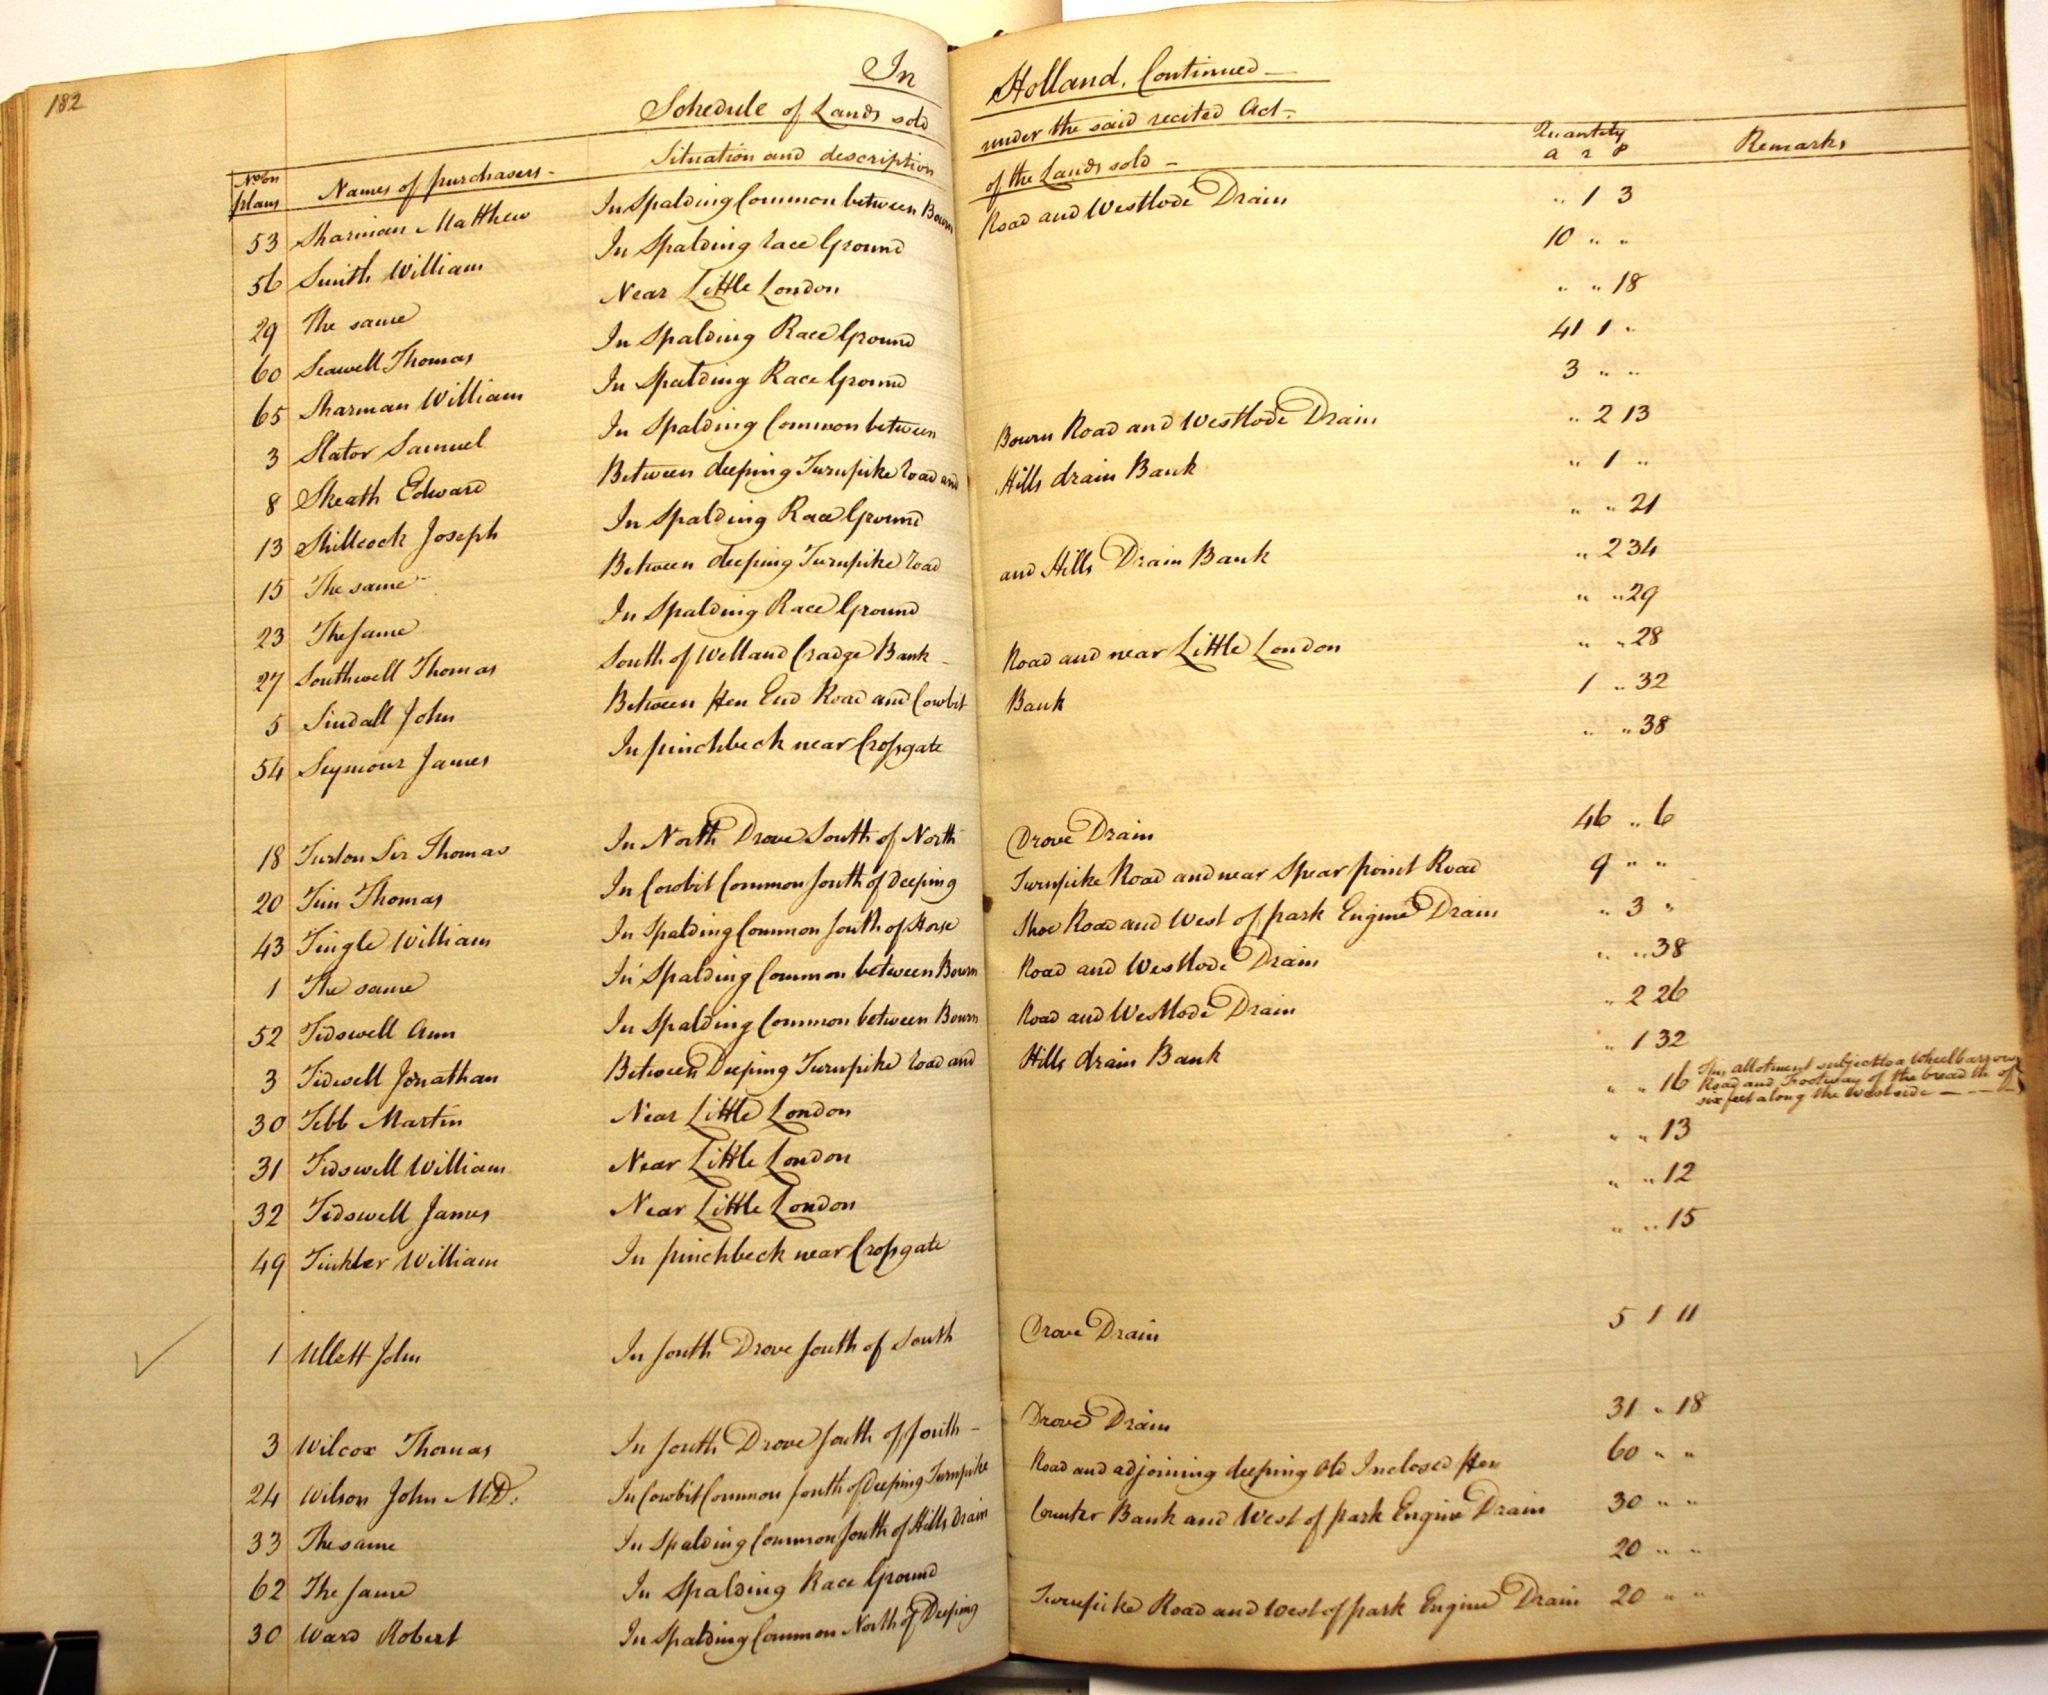 182
In Holland, Continued
Schedule of Lands sold under the said recited Act
Nos on plans Names of purchasers Situation and description of the Lands sold Quantity a r p Remarks
53 Sharman Matthew In Spalding Common between Bourn Road and Westlode Drain „ 1 3
56 Smith William In Spalding race Ground 10 „ „
29 The same Near Little London „ „ 18
60 Seawell Thomas In Spalding Race Ground 41 1 „
65 Sharman William In Spalding Race Ground 3 „ „
3 Slator Samuel In Spalding Common between Bourn Road and Westlode Drain „ 2 13
8 Skeath Edward Between deeping Turnpike road and Hills drain Bank „ 1 „
13 Shillcock Joseph In Spalding Race Ground „ „ 21
15 The same Between deeping Turnpike road and Hills Drain Bank „ 2 34
23 The same In Spalding Race Ground „ „ 29
27 Southwell Thomas South of Welland Cradge Bank Road and near Little London „ „ 28
5 Sindall John Between Fen End Road and Cowbit Bank 1 „ 32
54 Seymour James In pinchbeck near Crossgate „ „ 38
18 Turton Sir Thomas In North Drove South of North Drove Drain 46 „ 6
20 Tim Thomas In Cowbit Common South of deeping Turnpike Road and near Spear point Road 9 „ „
43 Tingle William In Spalding Common South of Horse Shoe Road and West of park Engine Drain „ 3 „
1 The same In Spalding Common between Bourn Road and Westlode Drain „ „ 38
52 Tidswell Ann In Spalding Common between Bourn Road and Westlode Drain „ 2 26
3 Tidwell Jonathan Between Deeping Turnpike road and Hills drain Bank „ 1 32
30 Tebb Martin Near Little London „ „ 16 This allotment subject to a Wheelbarrow
Road and Footway of the breadth of
six feet along the West side
31 Tidswell William Near Little London „ „ 13
32 Tidswell James Near Little London „ „ 12
49 Tinkler William In pinchbeck near Crossgate „ „ 15
1 Ullett John In South Drove South of South Drove Drain 5 1 11
3 Wilcox Thomas In South Drove South of South Drove Drain 31 „ 18
24 Wilson John M.D. In Cowbit Common South of Deeping Turnpike Road and adjoining deeping Old Inclosed Fen 60 „ „
33 The same In Spalding Common South of Hills drain Counter Bank and West of park Engine Drain 30 „ „
62 The same In Spalding Race Ground 20 „ „
30 Ward Robert In Spalding Common North of Deeping Turnpike Road and West of park Engine Drain 20 „ „